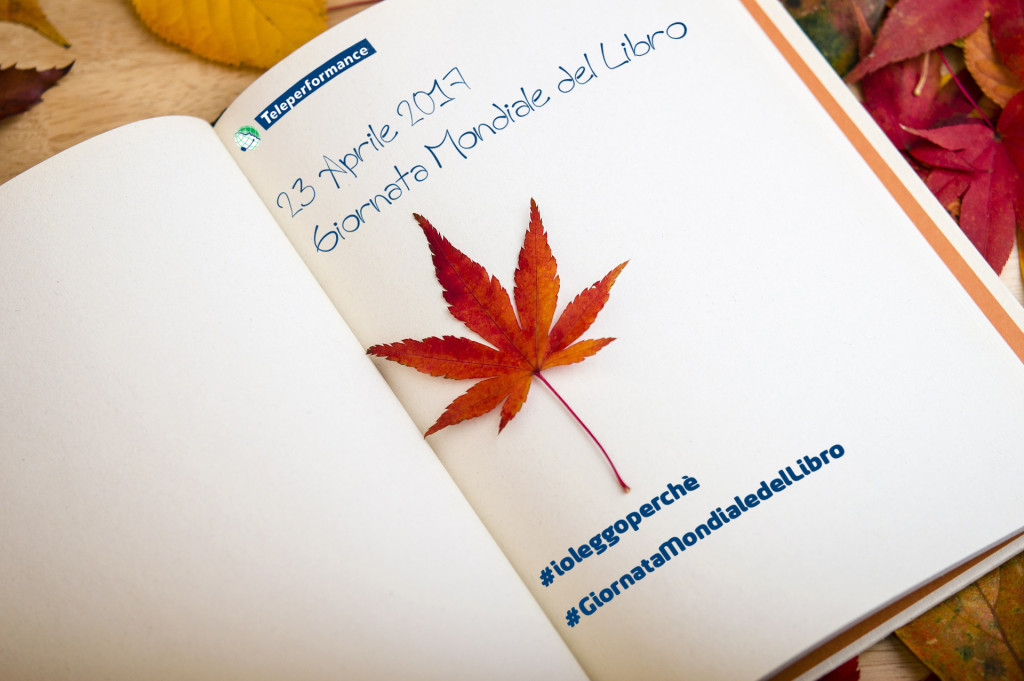 Teleperformance
23 Aprile 2017
Giornata Mondiale del Libro
#ioleggoperchè
#GiornataMondialedelLibro